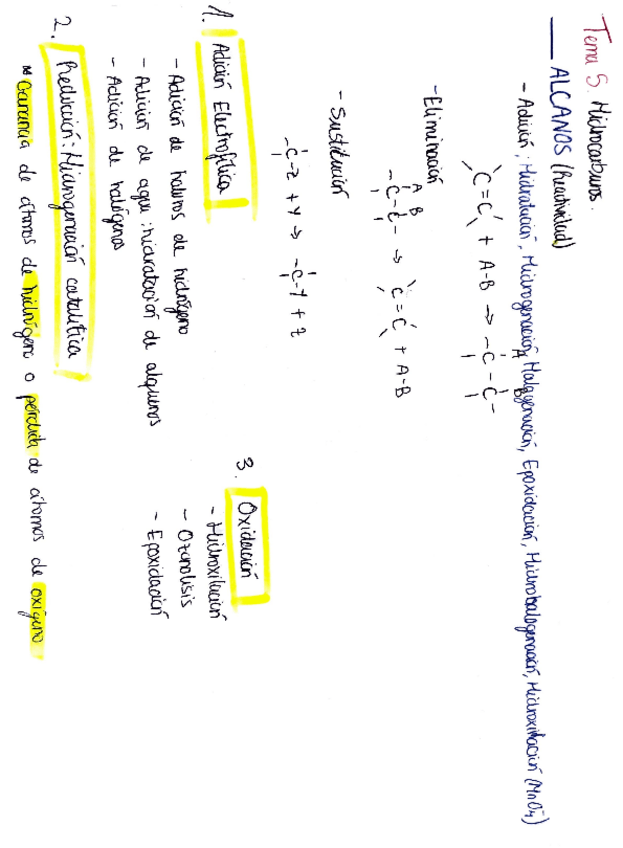 Tema 5. Hidrocarburos.
ALCANOS (Reactividad)
- Adición: Hidratación, Hidrogenación, Halogenación, Epoxidación, Hidrohalogenación, Hidroxilación (MnO₄⁻)
C=C + A-B → -C-C-
A B
- Eliminación
A B
-C-C- → C=C + A-B
- Sustitución
-C-Z + Y → -C-Y + Z
1. Adición Electrofílica
- Adición de haluros de hidrógeno
- Adición de agua: hidratación de alquenos
- Adición de halógenos
2. Reducción: Hidrogenación catalítica
* Ganancia de átomos de hidrógeno o pérdida de átomos de oxígeno
3. Oxidación
- Hidroxilación
- Ozonolisis
- Epoxidación